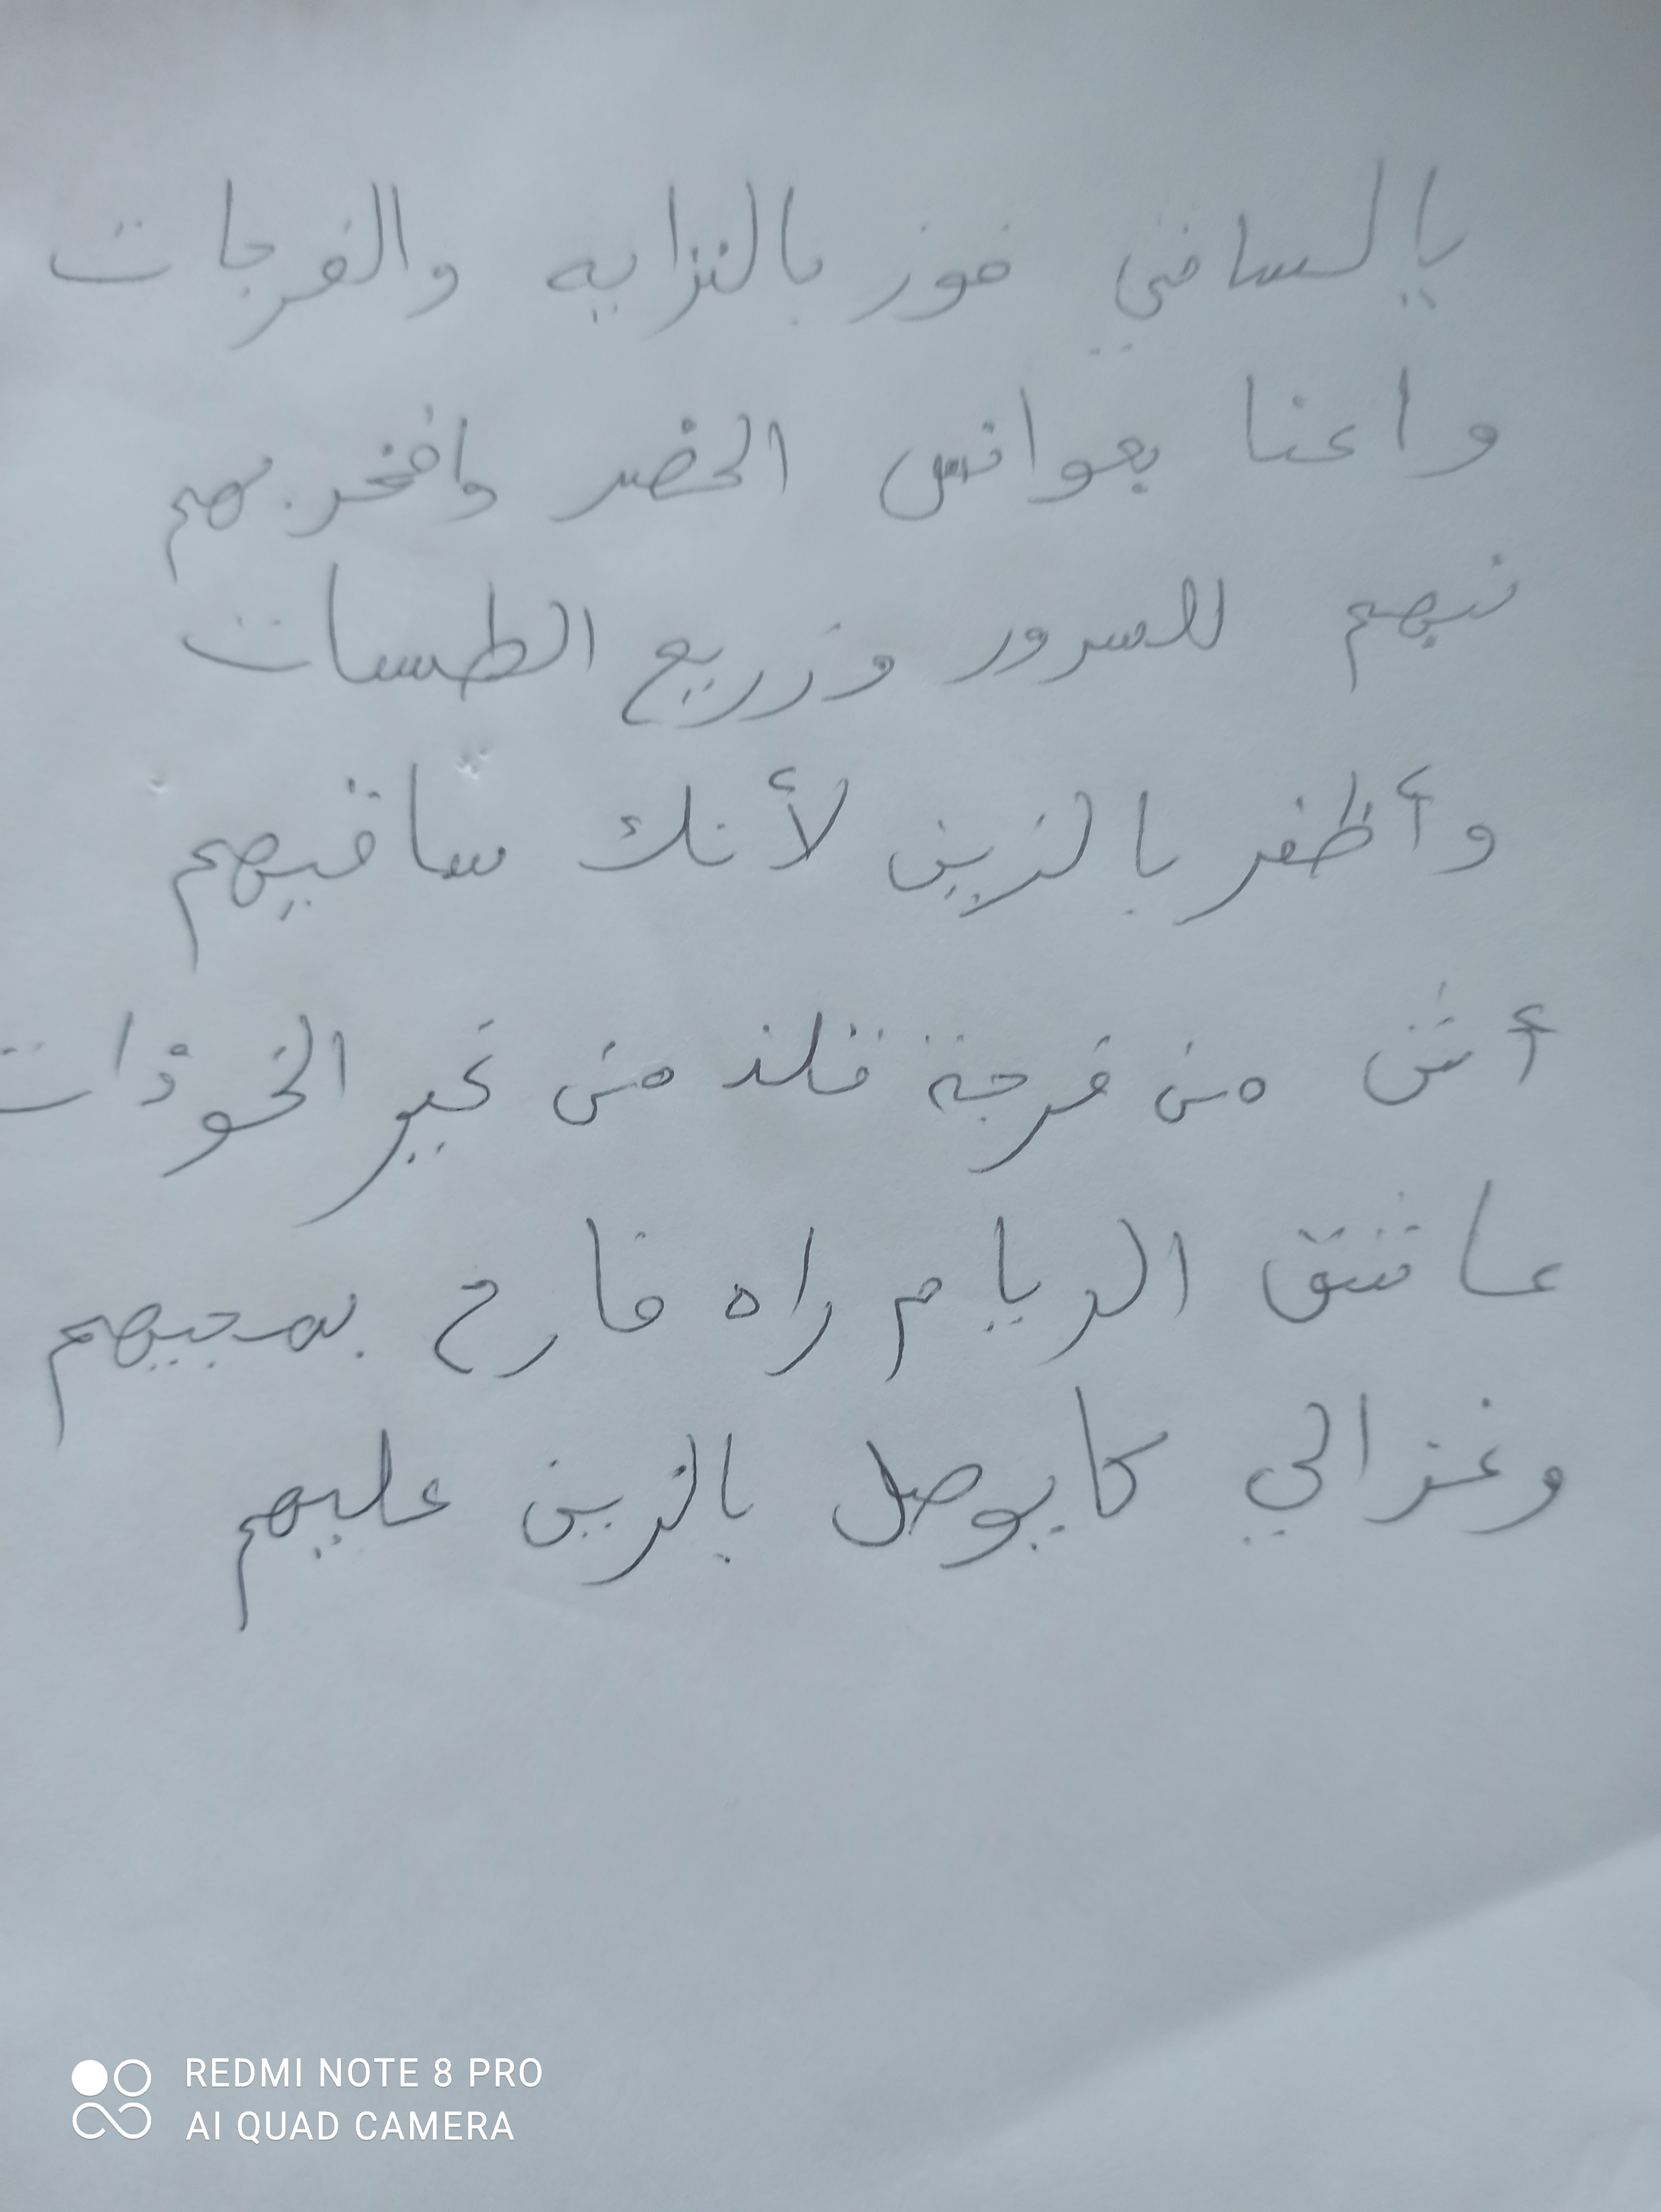 يالساقي فوز بالنزايه والفرجات
واعنا بعوانس الخضر وافخر بهم
نبهم للسرور وزريع الطسات
وأظفر بالزين لأنك ساقيهم
أش من فرجة تلذ من غير الخوذات
عاشق الريام راه فارح بمجيهم
وغزالي كايوصل بالزين عليهم
REDMI NOTE 8 PRO
AI QUAD CAMERA